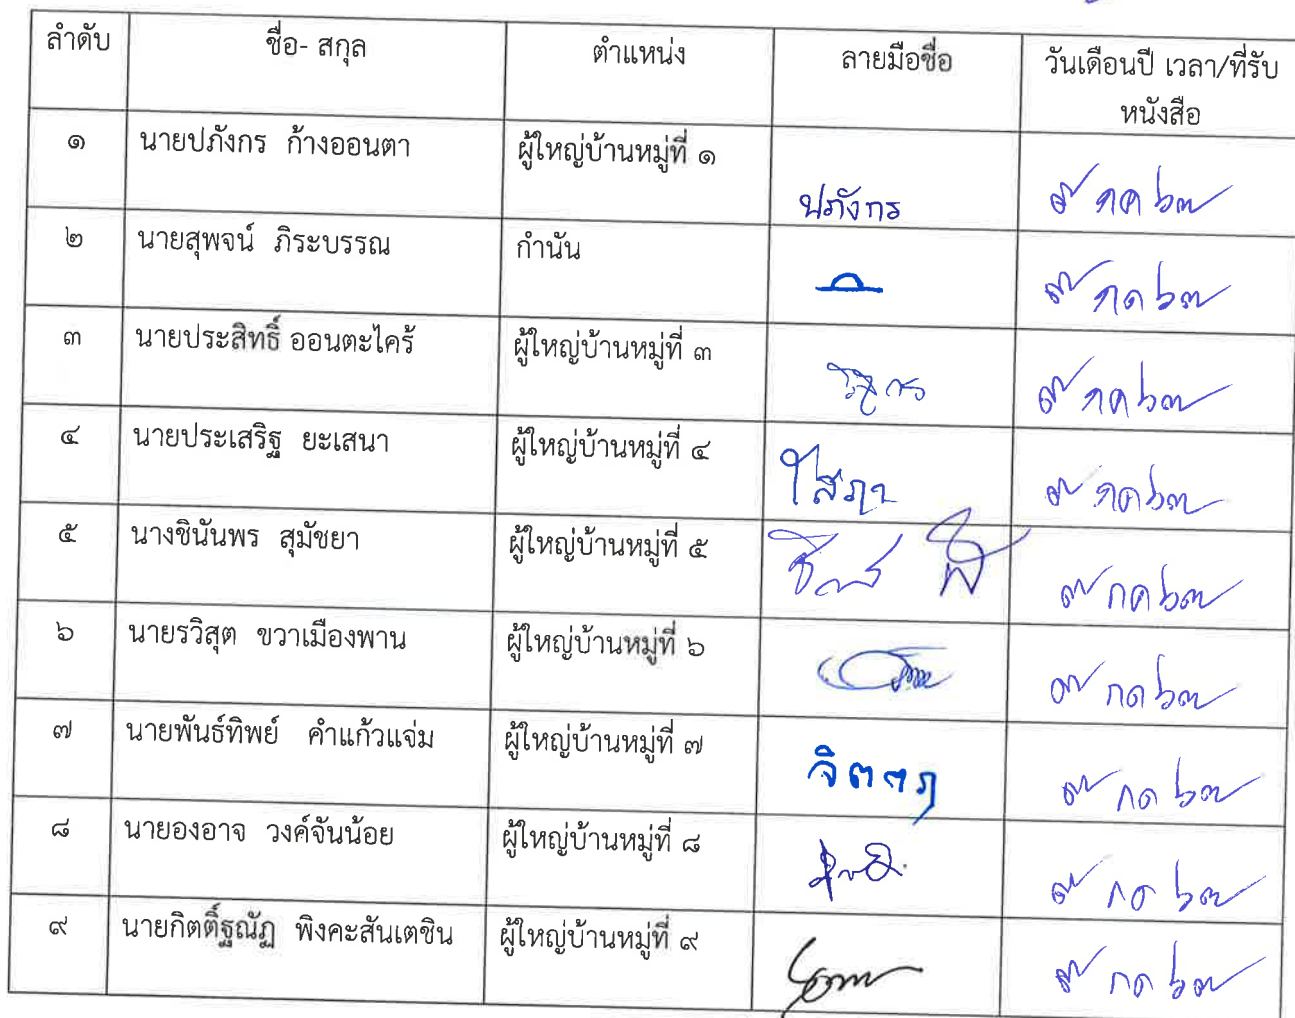 ลำดับ ชื่อ- สกุล ตำแหน่ง ลายมือชื่อ วันเดือนปี เวลา/ที่รับ
หนังสือ
๑ นายปภังกร ก้างออนตา ผู้ใหญ่บ้านหมู่ที่ ๑
ปภังกร กค ๖๓
๒ นายสุพจน์ ภิระบรรณ กำนัน
กค ๖๓
๓ นายประสิทธิ์ ออนตะไคร้ ผู้ใหญ่บ้านหมู่ที่ ๓
กค ๖๓
๔ นายประเสริฐ ยะเสนา ผู้ใหญ่บ้านหมู่ที่ ๔
กค ๖๓
๕ นางชินันพร สุมัชยา ผู้ใหญ่บ้านหมู่ที่ ๕
กค ๖๓
๖ นายรวิสุต ขวาเมืองพาน ผู้ใหญ่บ้านหมู่ที่ ๖
กค ๖๓
๗ นายพันธ์ทิพย์ คำแก้วแจ่ม ผู้ใหญ่บ้านหมู่ที่ ๗
กค ๖๓
๘ นายองอาจ วงค์จันน้อย ผู้ใหญ่บ้านหมู่ที่ ๘
กค ๖๓
๙ นายกิตติ์ฐณัฏ พิงคะสันเตชิน ผู้ใหญ่บ้านหมู่ที่ ๙
กค ๖๓